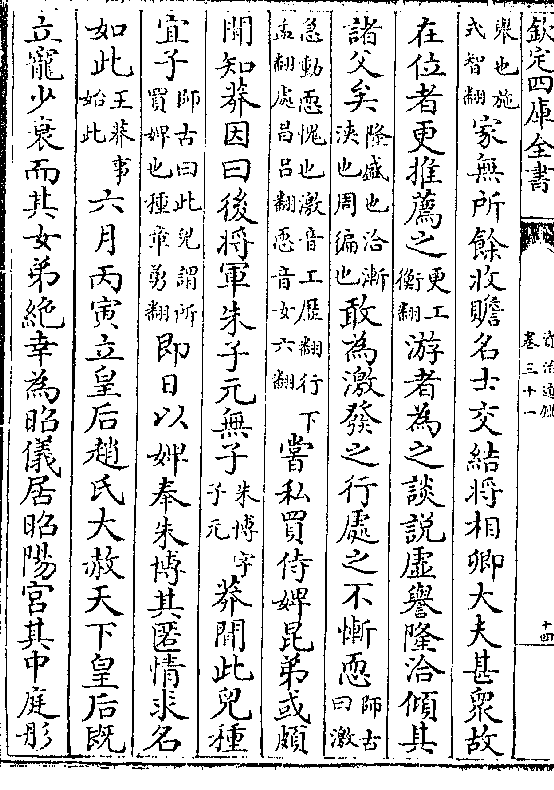 欽定四庫全書
資治通鑑
卷三十一
十四
舉也施式智翻家無所餘收贍名士交結將相卿大夫甚衆故
在位者更推薦之更工衡翻游者為之談說虛譽隆洽傾其
諸父矣隆盛也洽漸浹也周徧也敢為激發之行處之不慚恧師古曰激
急動恧愧也激音工歷翻行下孟翻處昌吕翻恧音女六翻嘗私買侍婢昆弟或頗
聞知莽因曰後將軍朱子元無子朱博字子元莽聞此兒種
宜子師古曰此兒謂所買婢也種章勇翻即日以婢奉朱博其匿情求名
如此王莽事始此六月丙寅立皇后趙氏大赦天下皇后既
立寵少衰而其女弟絶幸為昭儀居昭陽宫其中庭彤